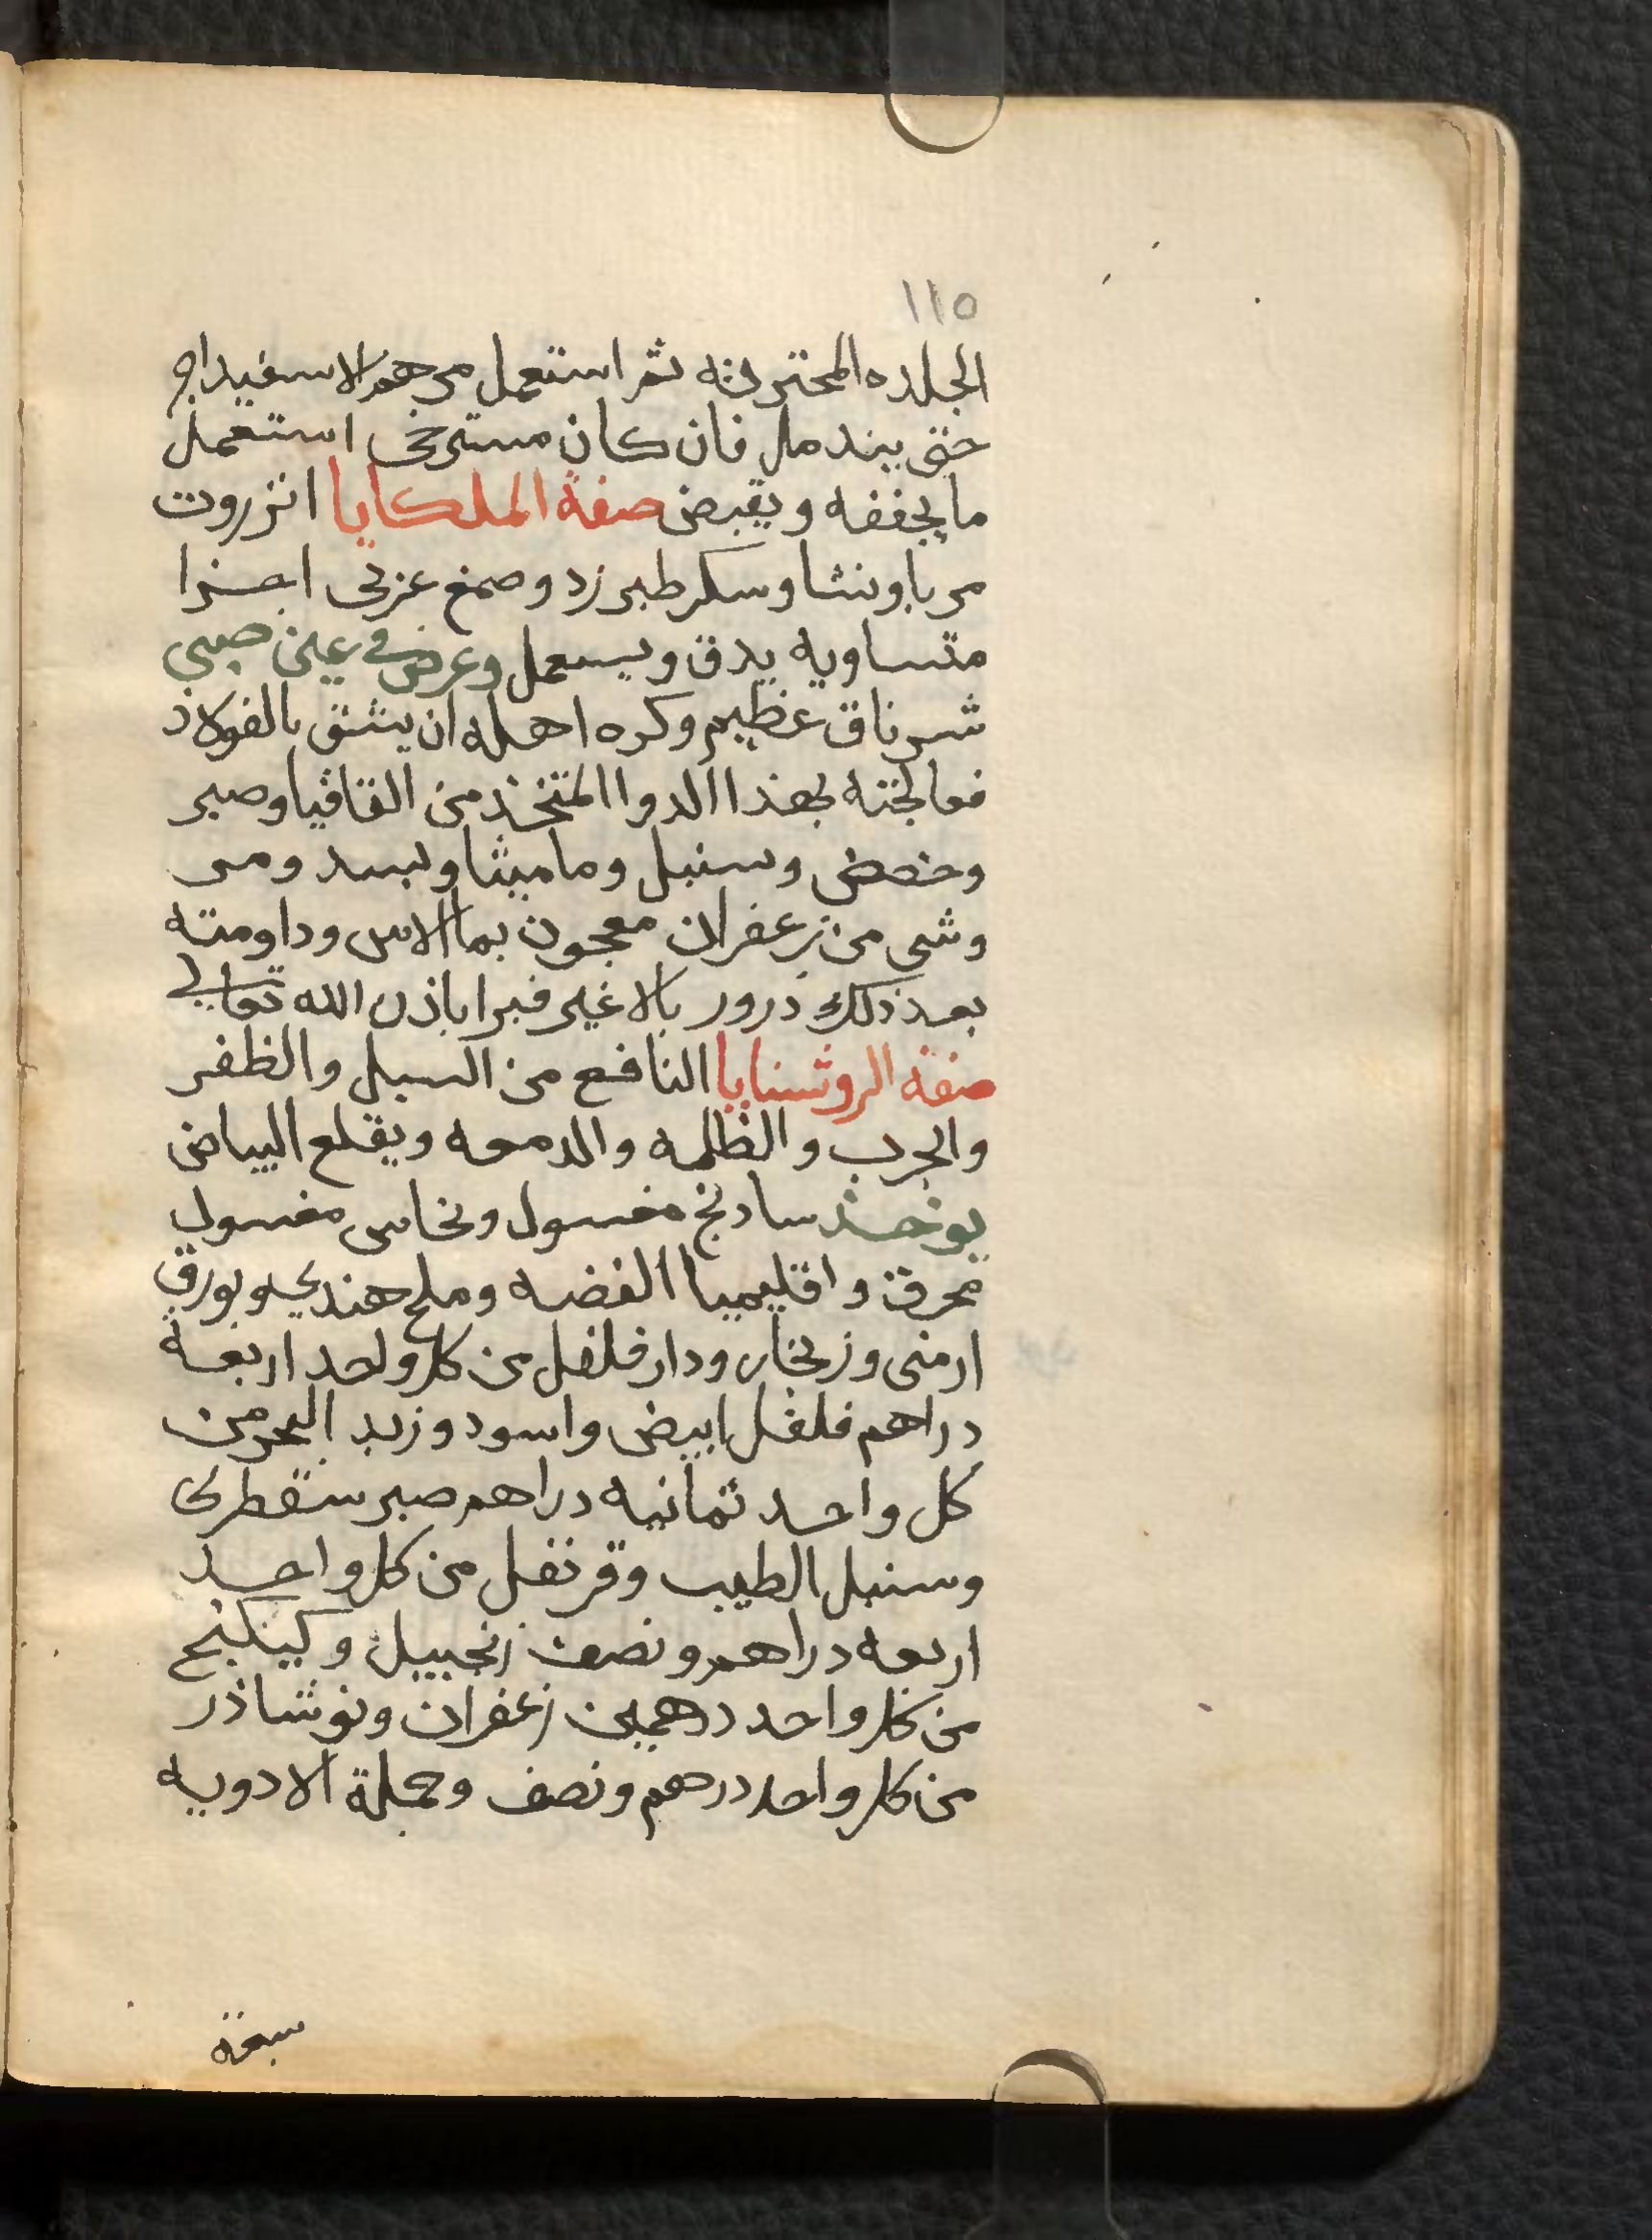 ١١٥
الجلده المحترقه ثم استعمل مرهم الاسفيداج
حتى يندمل فان كان مسترخى استعمل
ما يجففه ويقبض صفة الملكايا انزروت
مربا ونشا وسكر طبرزد وصمغ عربى اجزا
متساويه يدق ويستعمل وعرض في عين صبي
شرناق عظيم وكره اهله ان يشق بالفولاذ
فعالجته بهذا الدوا المتخذ من القاقيا وصبر
وحضض وسنبل وماميثا وبسد ومر
وشي من زعفران معجون بما الاس وداومته
بعد ذلك ذرور بالاغبر فبرا باذن الله تعالى
صفة الروشنايا النافع من السبل والظفر
والجرب والظلمه والدمعه ويقلع البياض
يوخذ سادنج مغسول ونحاس مغسول
محرق واقليميا الفضه وملح هندي وبورق
ارمنى وزنجار ودارفلفل من كل واحد اربعة
دراهم فلفل ابيض واسود وزبد البحر من
كل واحد ثمانيه دراهم صبر سقطرى
وسنبل الطيب وقرنفل من كل واحد
اربعه دراهم ونصف زنجبيل و
من كل واحد درهمين زعفران ونوشاذر
من كل واحد درهم ونصف وجملة الادويه
سبعة